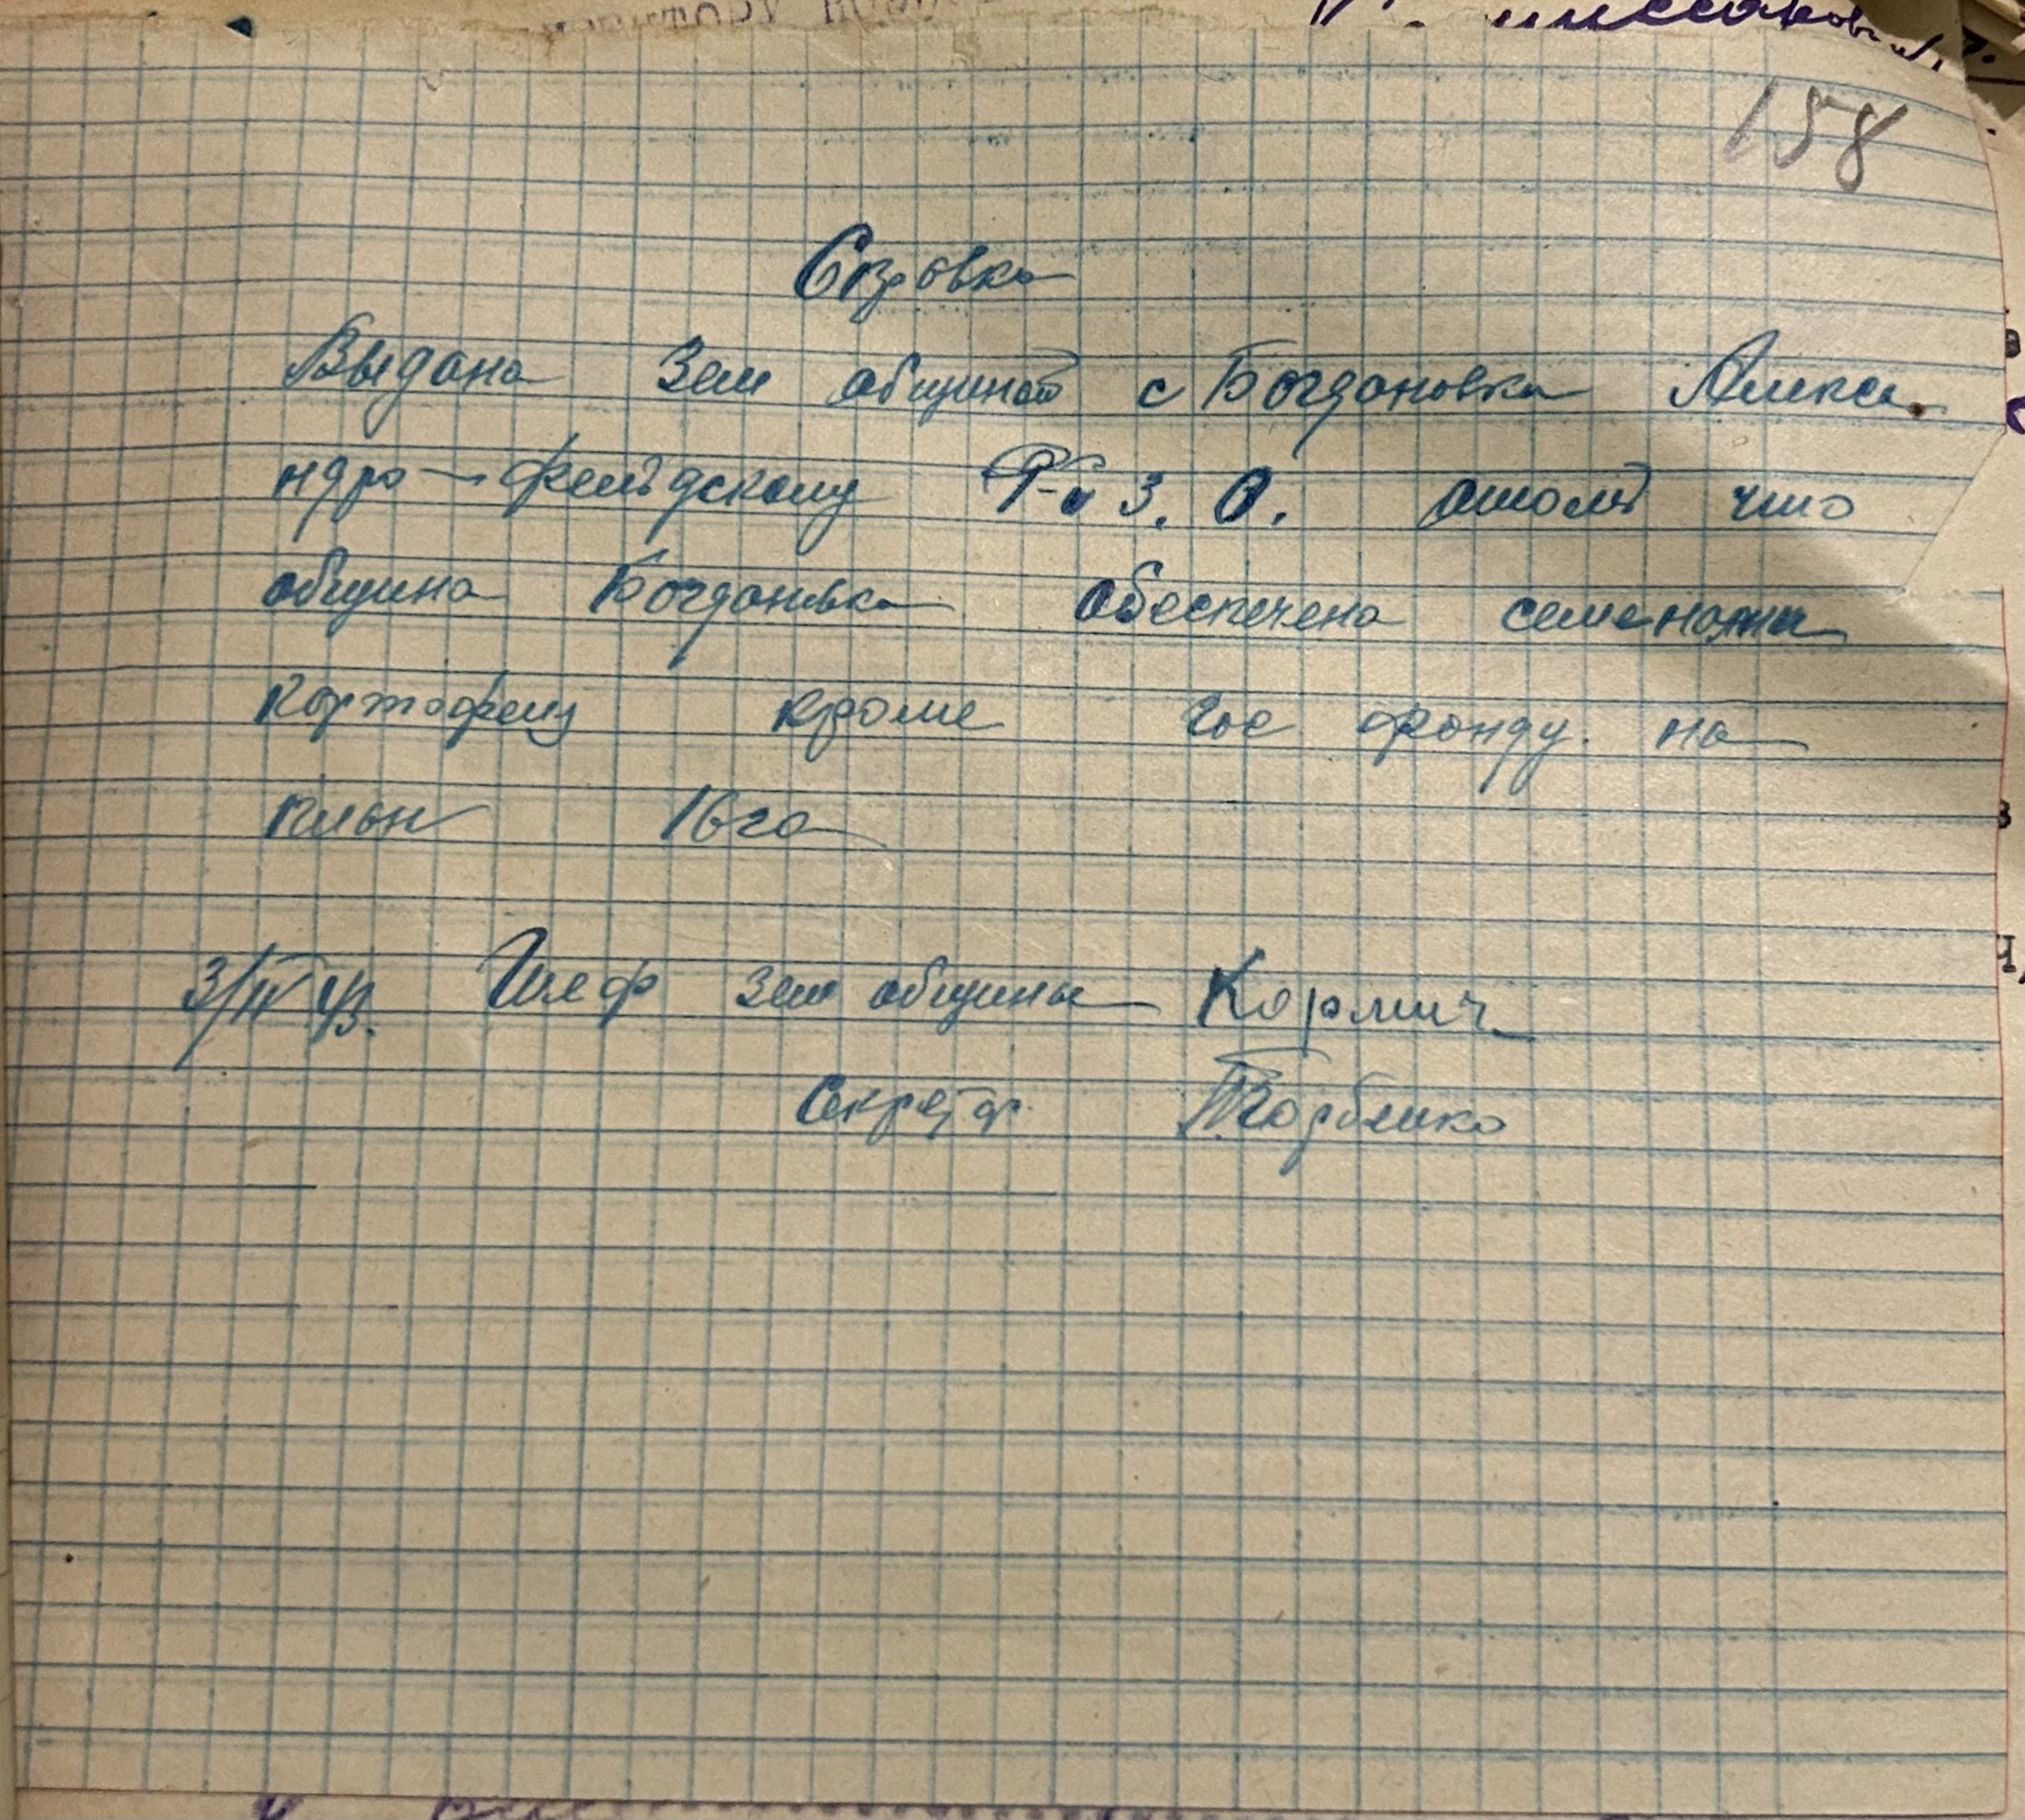 158
Справка
Выдана Зем общиной с Богдановка Алекса
ндро-фельдскому Р-в З. О. отом что
община Богдановка обеспечена семенами
картофелу кроме гос фонду. на
план 16га
3/IV 43. Шеф зем общины Кормич
Секретар Горбенко